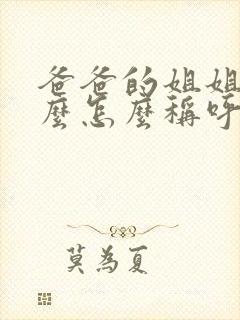 爸爸的姐姐
麼怎麼稱呼
莫為夏